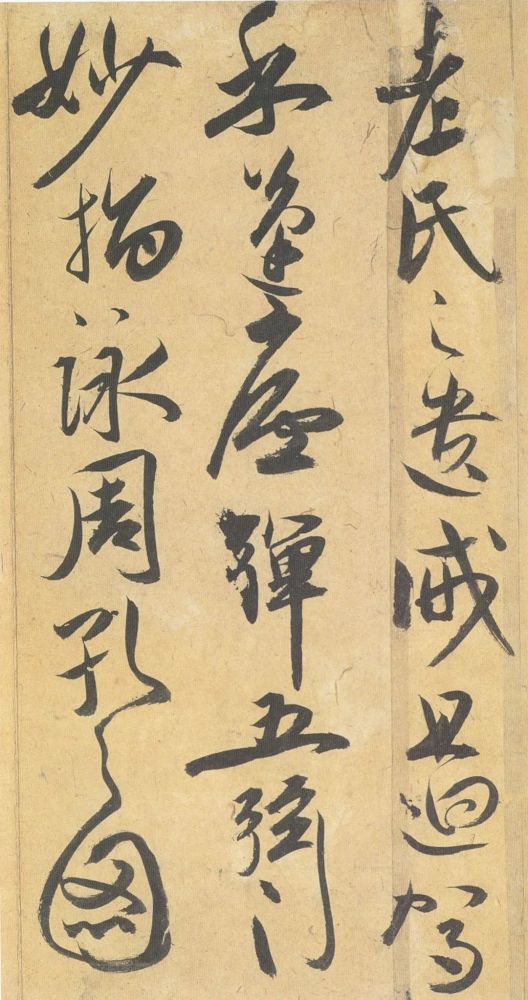 老氏之遺戒且迴駕
乎蓬廬彈五弦之
妙指詠周孔之圖